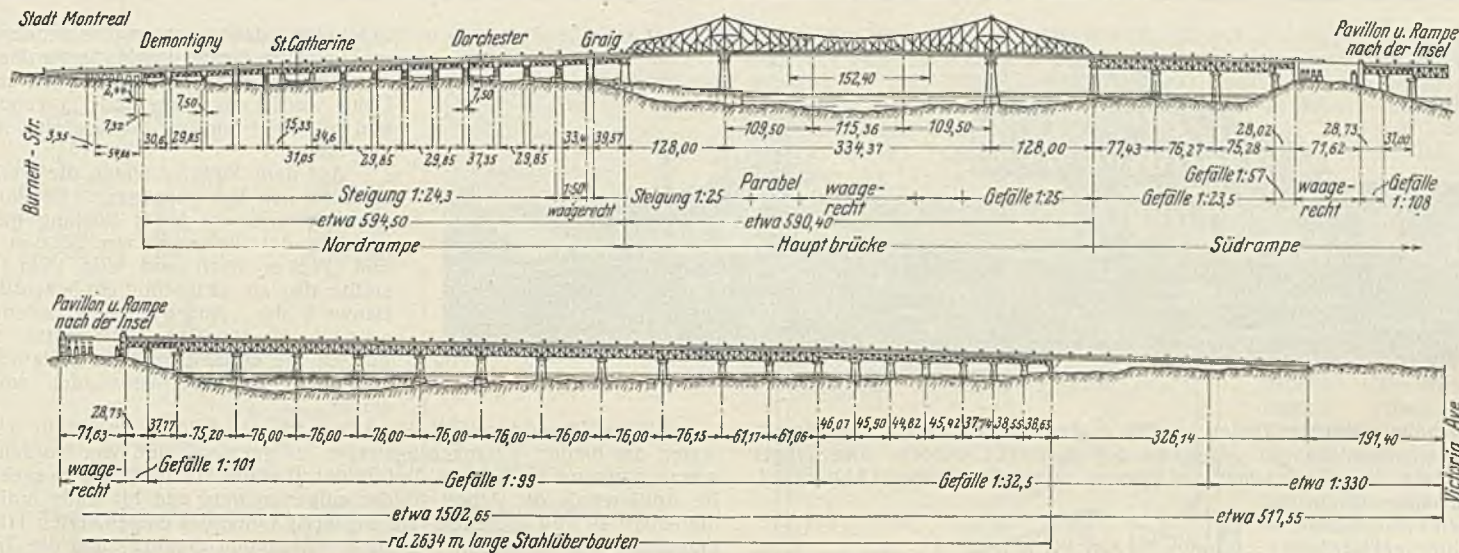 Stadt Montreal
Demontigny
St.Catherine
Dorchester
Graig
Pavillon u. Rampe
nach der Insel
Burnett - Str.
152,40
7,50
7,50
7,32
3,35
30,6
29,85
15,35
34,6
33,4
39,57
37,05
29,85
29,85
37,35
29,85
109,50
115,36
109,50
128,00
334,37
128,00
77,43
76,27
75,28
28,02
71,62
28,73
37,00
Steigung 1:24,3
1:50
waagerecht
Steigung 1:25
Parabel
waage-
recht
Gefälle 1:25
Gefälle 1:23,5
Gefälle 1:57
waage-
recht
Gefälle
1:108
etwa 594,50
etwa 590,40
Nordrampe
Hauptbrücke
Südrampe
Pavillon u. Rampe
nach der Insel
28,73
71,63
37,17
75,20
76,00
76,00
76,00
76,00
76,00
76,00
76,00
76,15
61,17
61,06
46,07
45,50
44,82
45,42
37,74
38,55
38,65
326,14
191,40
Victoria Ave
waage-
recht
Gefälle 1:101
Gefälle 1:99
Gefälle 1:32,5
etwa 1:330
etwa 1502,65
etwa 517,55
rd. 2634 m lange Stahlüberbauten